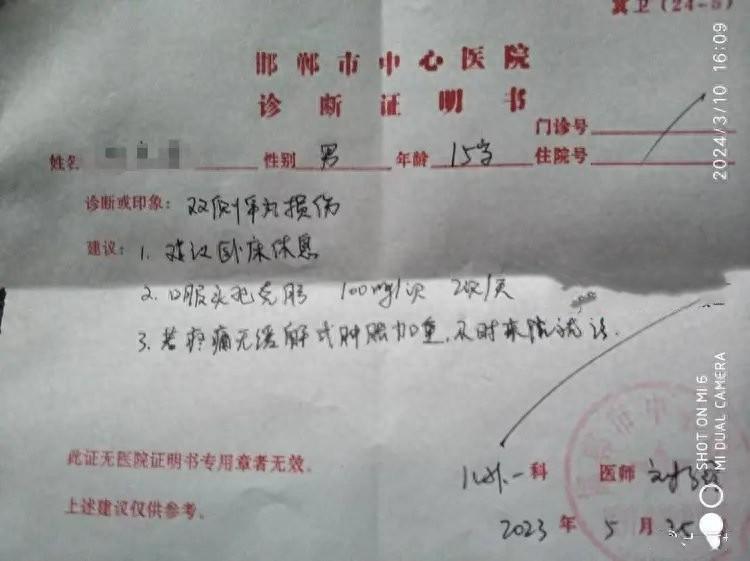 冀卫（24-5）
邯郸市中心医院
诊断证明书
门诊号
姓名 性别 男 年龄 15岁 住院号
诊断或印象：双侧睾丸损伤
建议：1. 建议卧床休息
2. 口服头孢克肟 100mg/次 2次/天
3. 若疼痛无缓解或肿胀加重，及时来院就诊.
此证无医院证明书专用章者无效。
上述建议仅供参考。
儿外一科 医师
2023 年 5 月 25
2024/3/10 16:09
SHOT ON MI 6
MI DUAL CAMERA